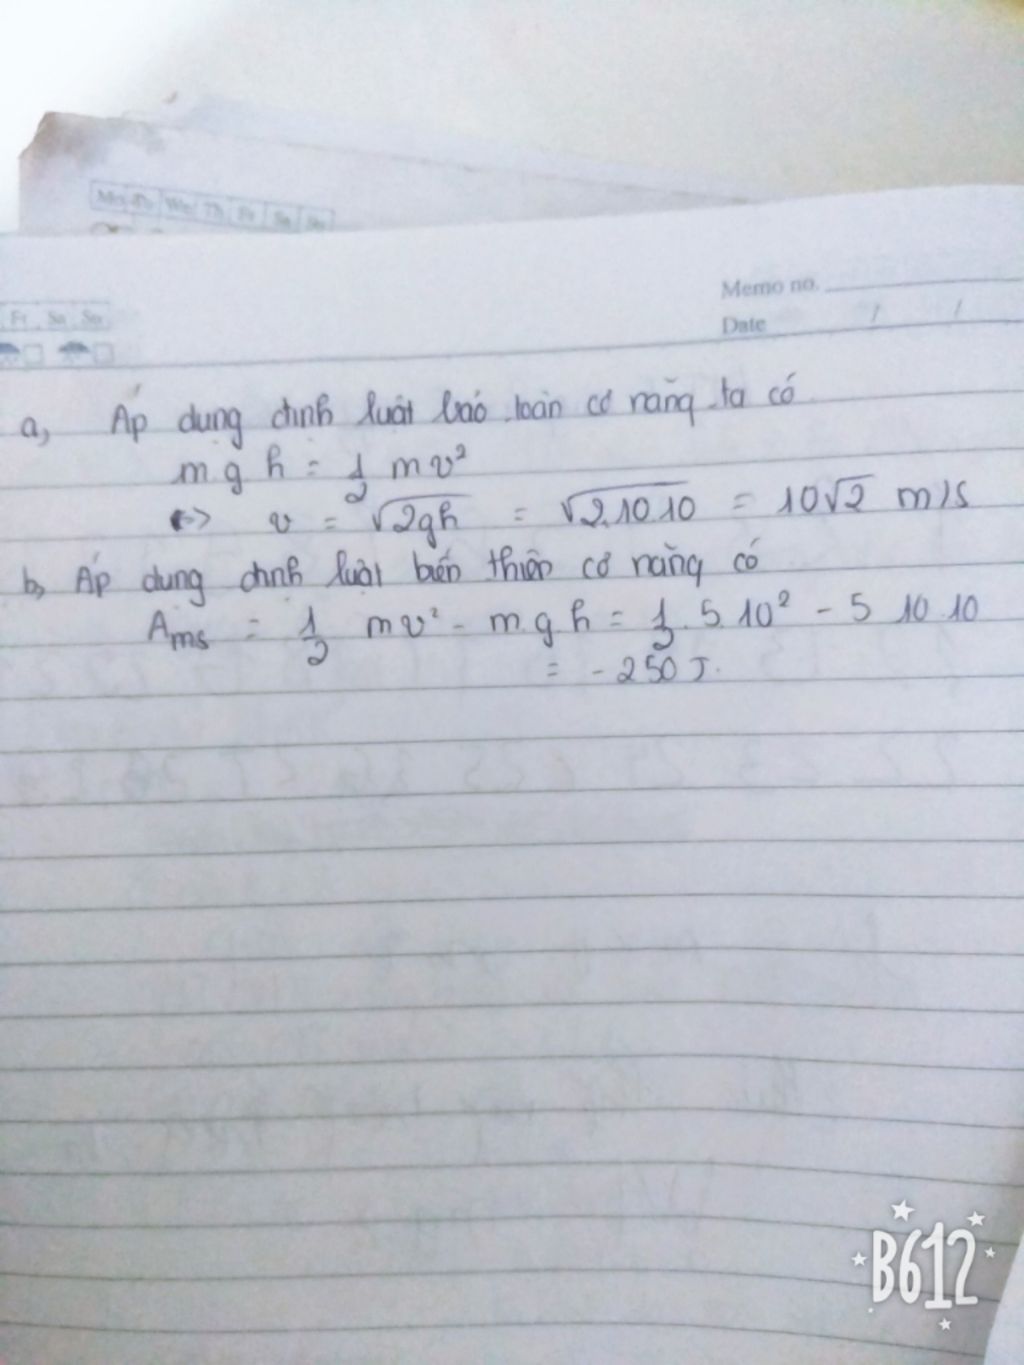 Mo Tu We Th Fr Sa Su
Memo no.
Fr Sa Su
Date / /
a, Áp dụng định luật bảo toàn cơ năng ta có
m g h = 1/2 m v²
<=> v = √2gh = √2.10.10 = 10√2 m/s
b, Áp dụng định luật biến thiên cơ năng có
Ams = 1/2 mv² - m.g.h = 1/2 . 5.10² - 5 10.10
= - 250 J.
B612